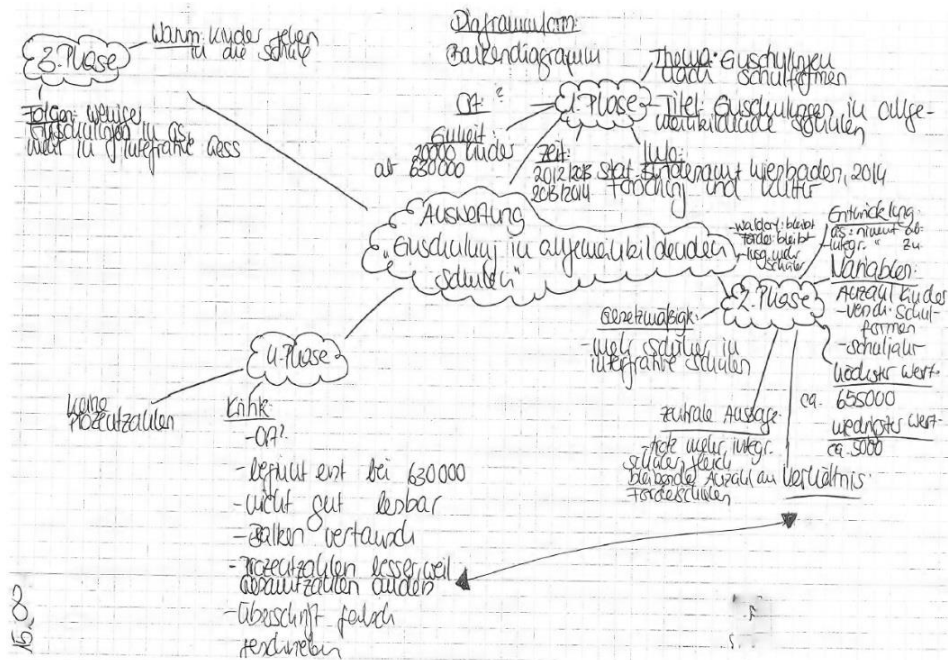 Diagrammform:
Balkendiagramm
3. Phase
Warum: Kinder gehen
in die Schule
Folgen: weniger
Einschulungen in GS
mehr in integrative
1. Phase
Thema: Einschulungen
nach Schulformen
Titel: Einschulungen in allge-
meinbildende Schulen
Ort: ?
Einheit:
20000 Kinder
ab 630000
Zeit:
2012/2013
2013/2014
Wo:
Stat. Bundesamt Wiesbaden, 2014
Forschung und Kultur
Auswertung
"Einschulung in allgemeinbildenden
Schulen"
2. Phase
-Waldorf: bleibt
Förder: bleibt
-insg. mehr
Schüler
Entwicklung:
GS: nimmt ab
integr. " zu
Variablen:
Anzahl Kinder
-versch. Schul-
formen
-Schuljahr
höchster Wert:
ca. 655000
niedrigster Wert:
ca. 5000
Gesetzmäßigk.:
-mehr Schüler in
integrative Schulen
zentrale Aussage:
-trotz mehr integr.
Schüler, gleich
bleibende Anzahl an
Förderschulen
Verhältnis:
4. Phase
keine
Prozentzahlen
Kritik
-Ort?
-beginnt erst bei 630000
-nicht gut lesbar
-Balken vertausch
-Prozentzahlen besser, weil
-Überschrift falsch
geschrieben
15,00